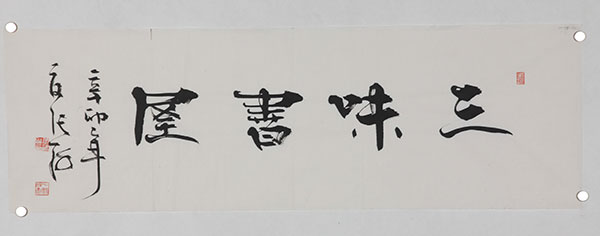 三味書屋
辛卯之年